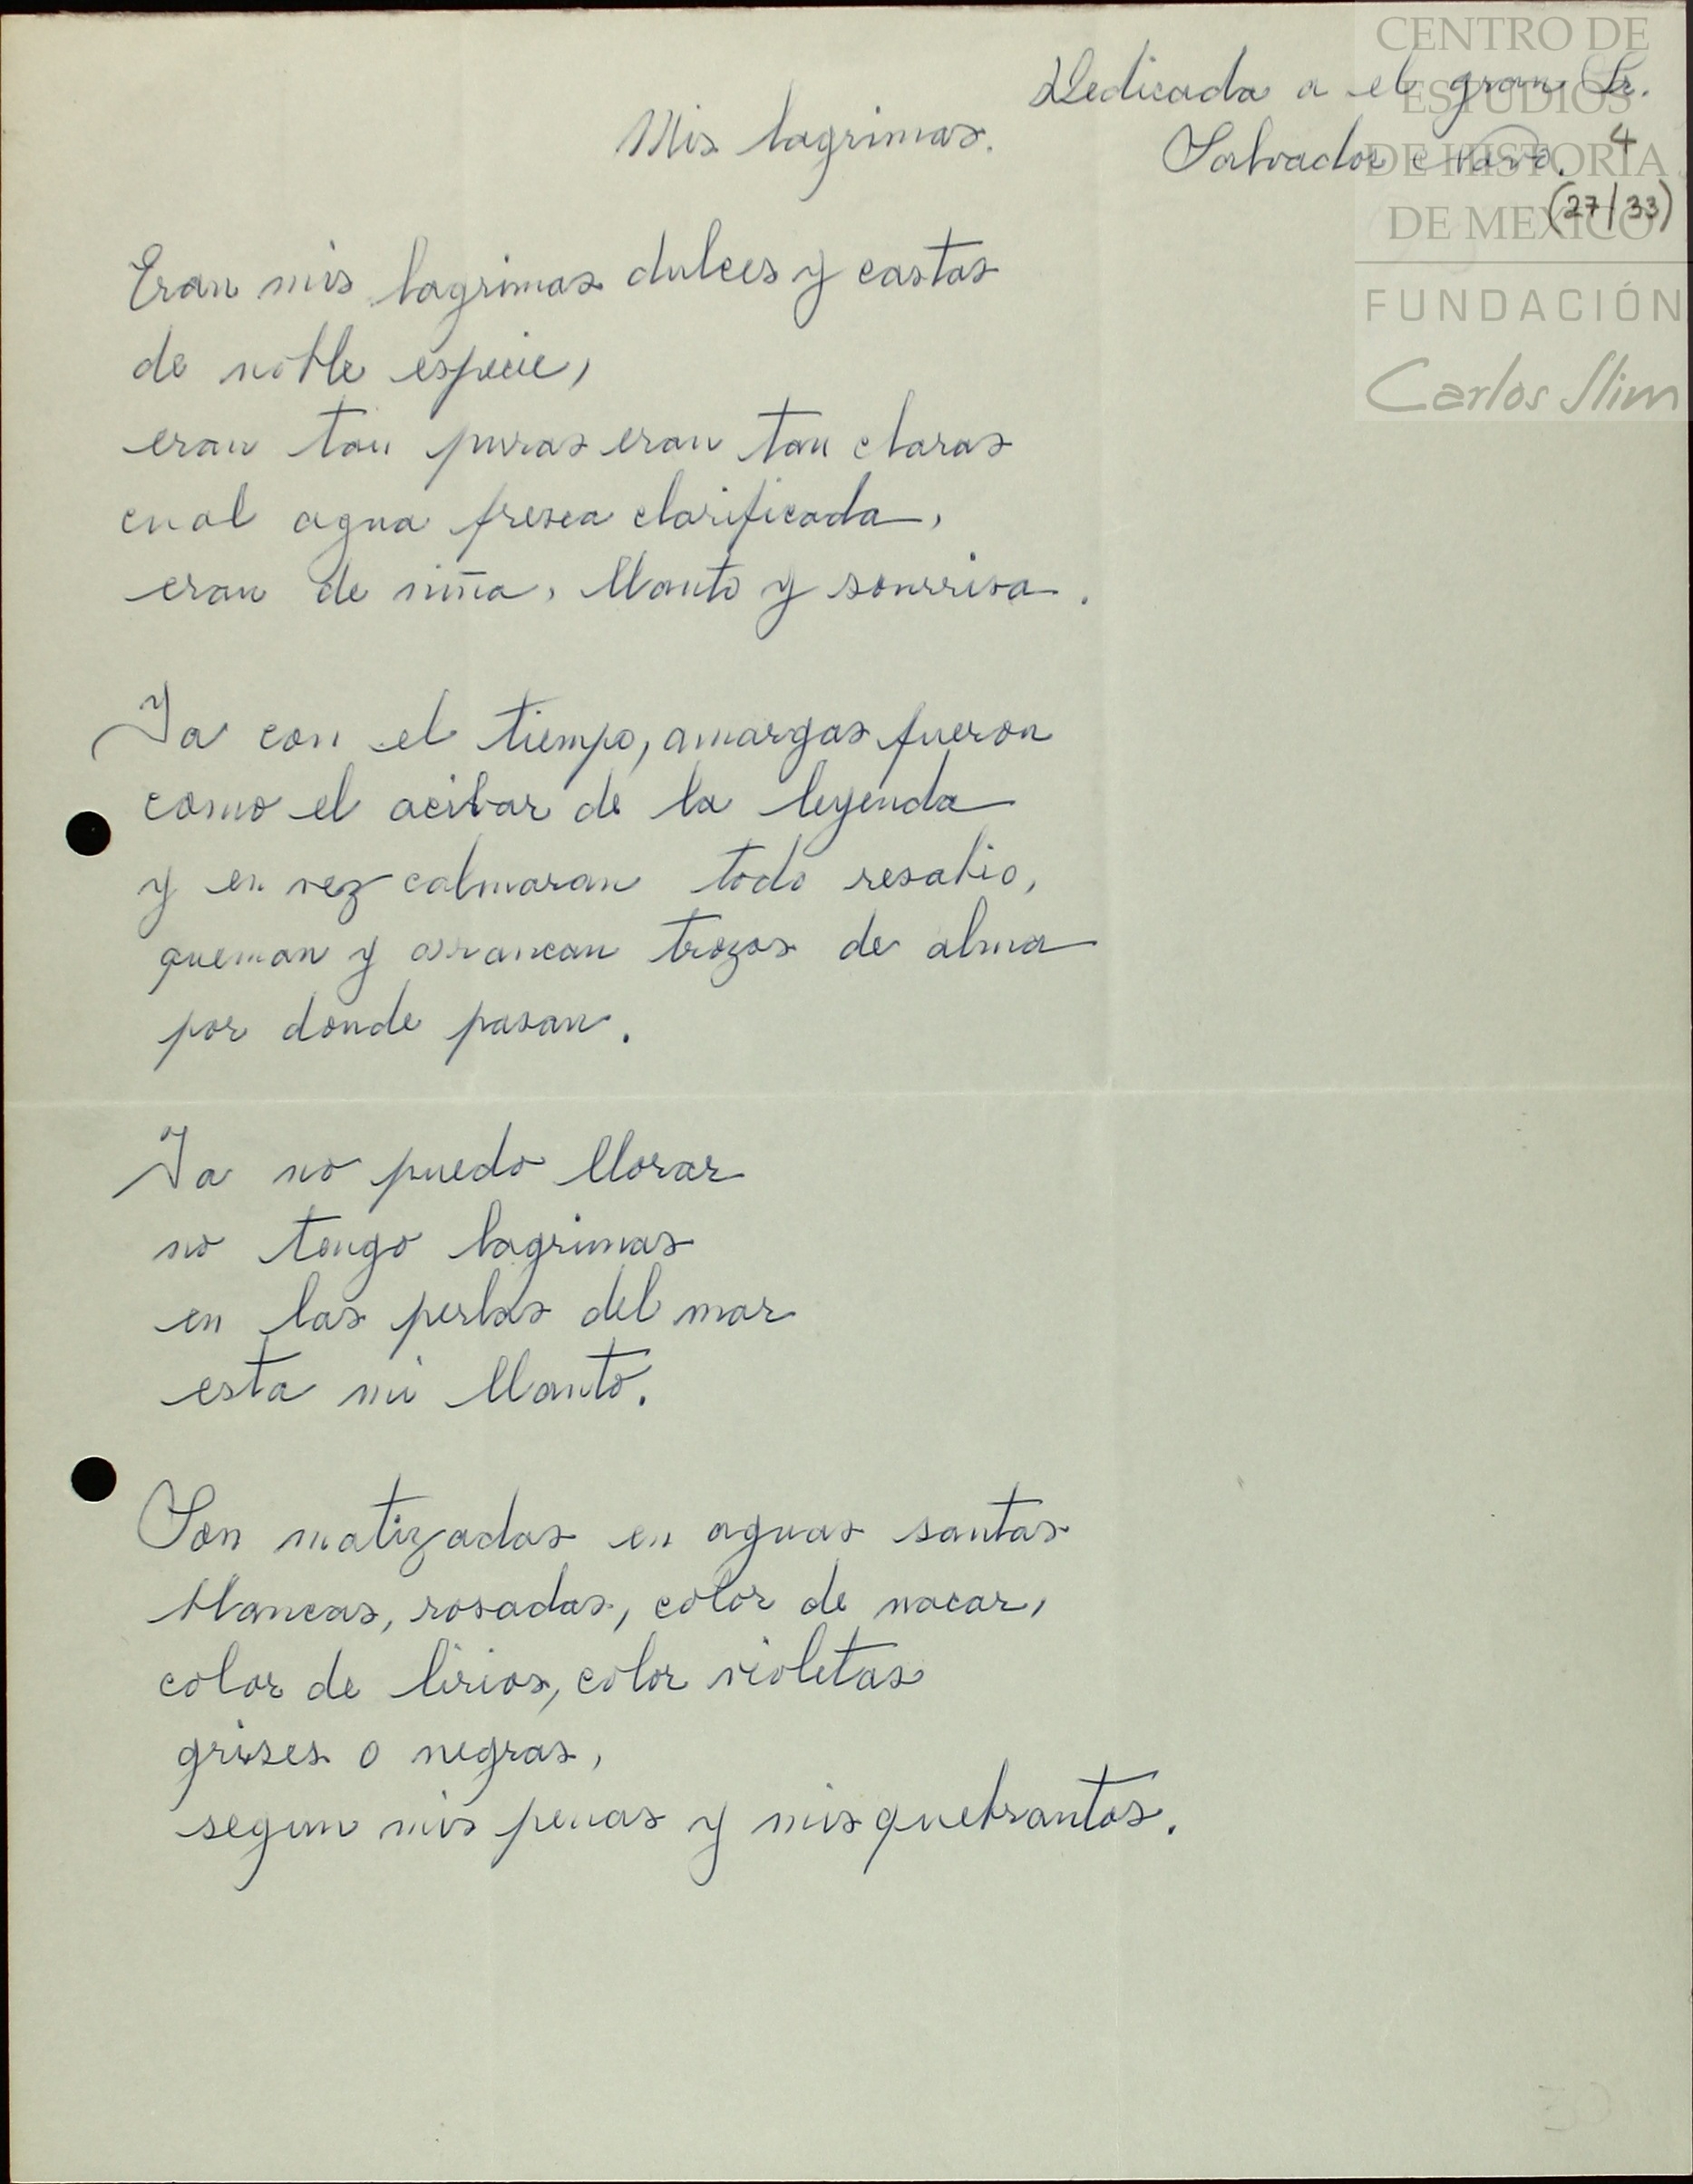 Dedicada a el gran Sr.
Salvador Novo. 4
(27/33)
Mis lagrimas.
Eran mis lagrimas dulces y castas
de noble especie,
eran tan puras eran tan claras
cual agua fresca clarificada,
eran de niña, llanto y sonrrisa.
Ya con el tiempo, amargas fueron
como el acibar de la leyenda
y en vez calmaran todo resabio,
queman y arrancan trozos de alma
por donde pasan.
Ya no puedo llorar
no tengo lagrimas
en las perlas del mar
esta mi llanto.
Son matizadas en aguas santas
blancas, rosadas, color de nacar,
color de lirios, color violetas
grises o negras,
segun mis penas y mis quebrantos.
CENTRO DE
ESTUDIOS
DE HISTORIA
DE MEXICO
FUNDACIÓN
Carlos Slim